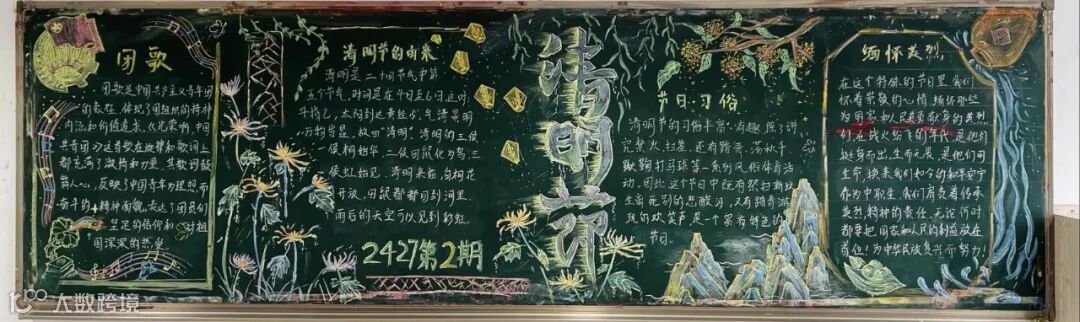 团歌
团歌是中国共产主义青年团
的象征，体现了团组织的精神
内涵和价值追求，《光荣啊，中国
共青团》这首歌在旋律和歌词上
都充满了激情和力量，
舞人心，反映了中国青年为理想而
奋斗的精神面貌，表达了团员们
坚定的信仰和对祖
国深深的热爱
清明节的由来
清明是二十四节气中第
五个节气，时间是在4月5日
斗指乙，太阳到达黄经15°，气清景明
万物皆显，故曰"清明"。清明的三候
一候桐始华，二候田鼠化为鴽，三
候虹始见。清明来临，白桐花
开放，田鼠都回到洞里，
雨后的天空可以见到彩虹
2427第2期
清明节
节日习俗
清明节的习俗丰富有趣，除了讲
究禁火、扫墓，还有踏青、荡秋千
蹴鞠、打马球等一系列风俗体育活
动。因此，这个节日中既有祭扫新坟
生离死别的悲酸泪，又有踏青游
玩的欢笑声，是一个富有特色的
节日。
缅怀先烈
在这个特殊的节日里，我们
怀着崇敬的心情，缅怀那些
为国家和人民英勇献身的英烈
们，在战火纷飞的年代，是他们
挺身而出，生而无畏，是他们用
生命，换来我们如今的和平安宁
作为中职生，我们肩负着传承
英烈精神的责任，无论何时
都要把国家和人民的利益放在
首位！为中华民族复兴而努力！
大数跨境